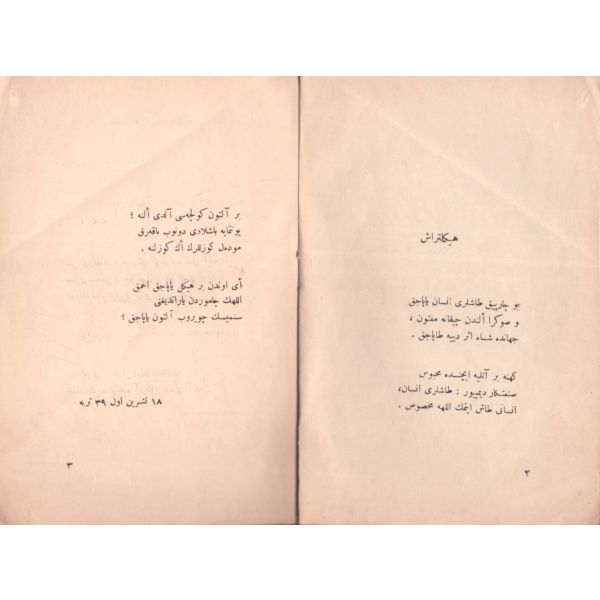 هیكلتراش
بو چارپیق طاشلری انسان یاپاجق
و صوكرا ألندن چیقانه مفتون ،
جهانده شاه اثر دییه طاپاجق .
كهنه بر آتلیه ایچنده محبوس
صنعتكار دیمییور : طاشلری انسان،
انسانی طاش ایتمك اللهه مخصوص .
۲
بر آلتون كولچه‌سی آلدی ألنه ؛
یونتمایه باشلادی دونوب باقه‌رق
موده‌ل كوزللرك أك كوزلنه .
أی اوندن بر هیكل یاپاجق احمق
اللهك چاموردن یاراتدیغنی
سنمیسك چویروب آلتون یاپاجق ؟
۱۸ تشرین اول ۳۹
۳